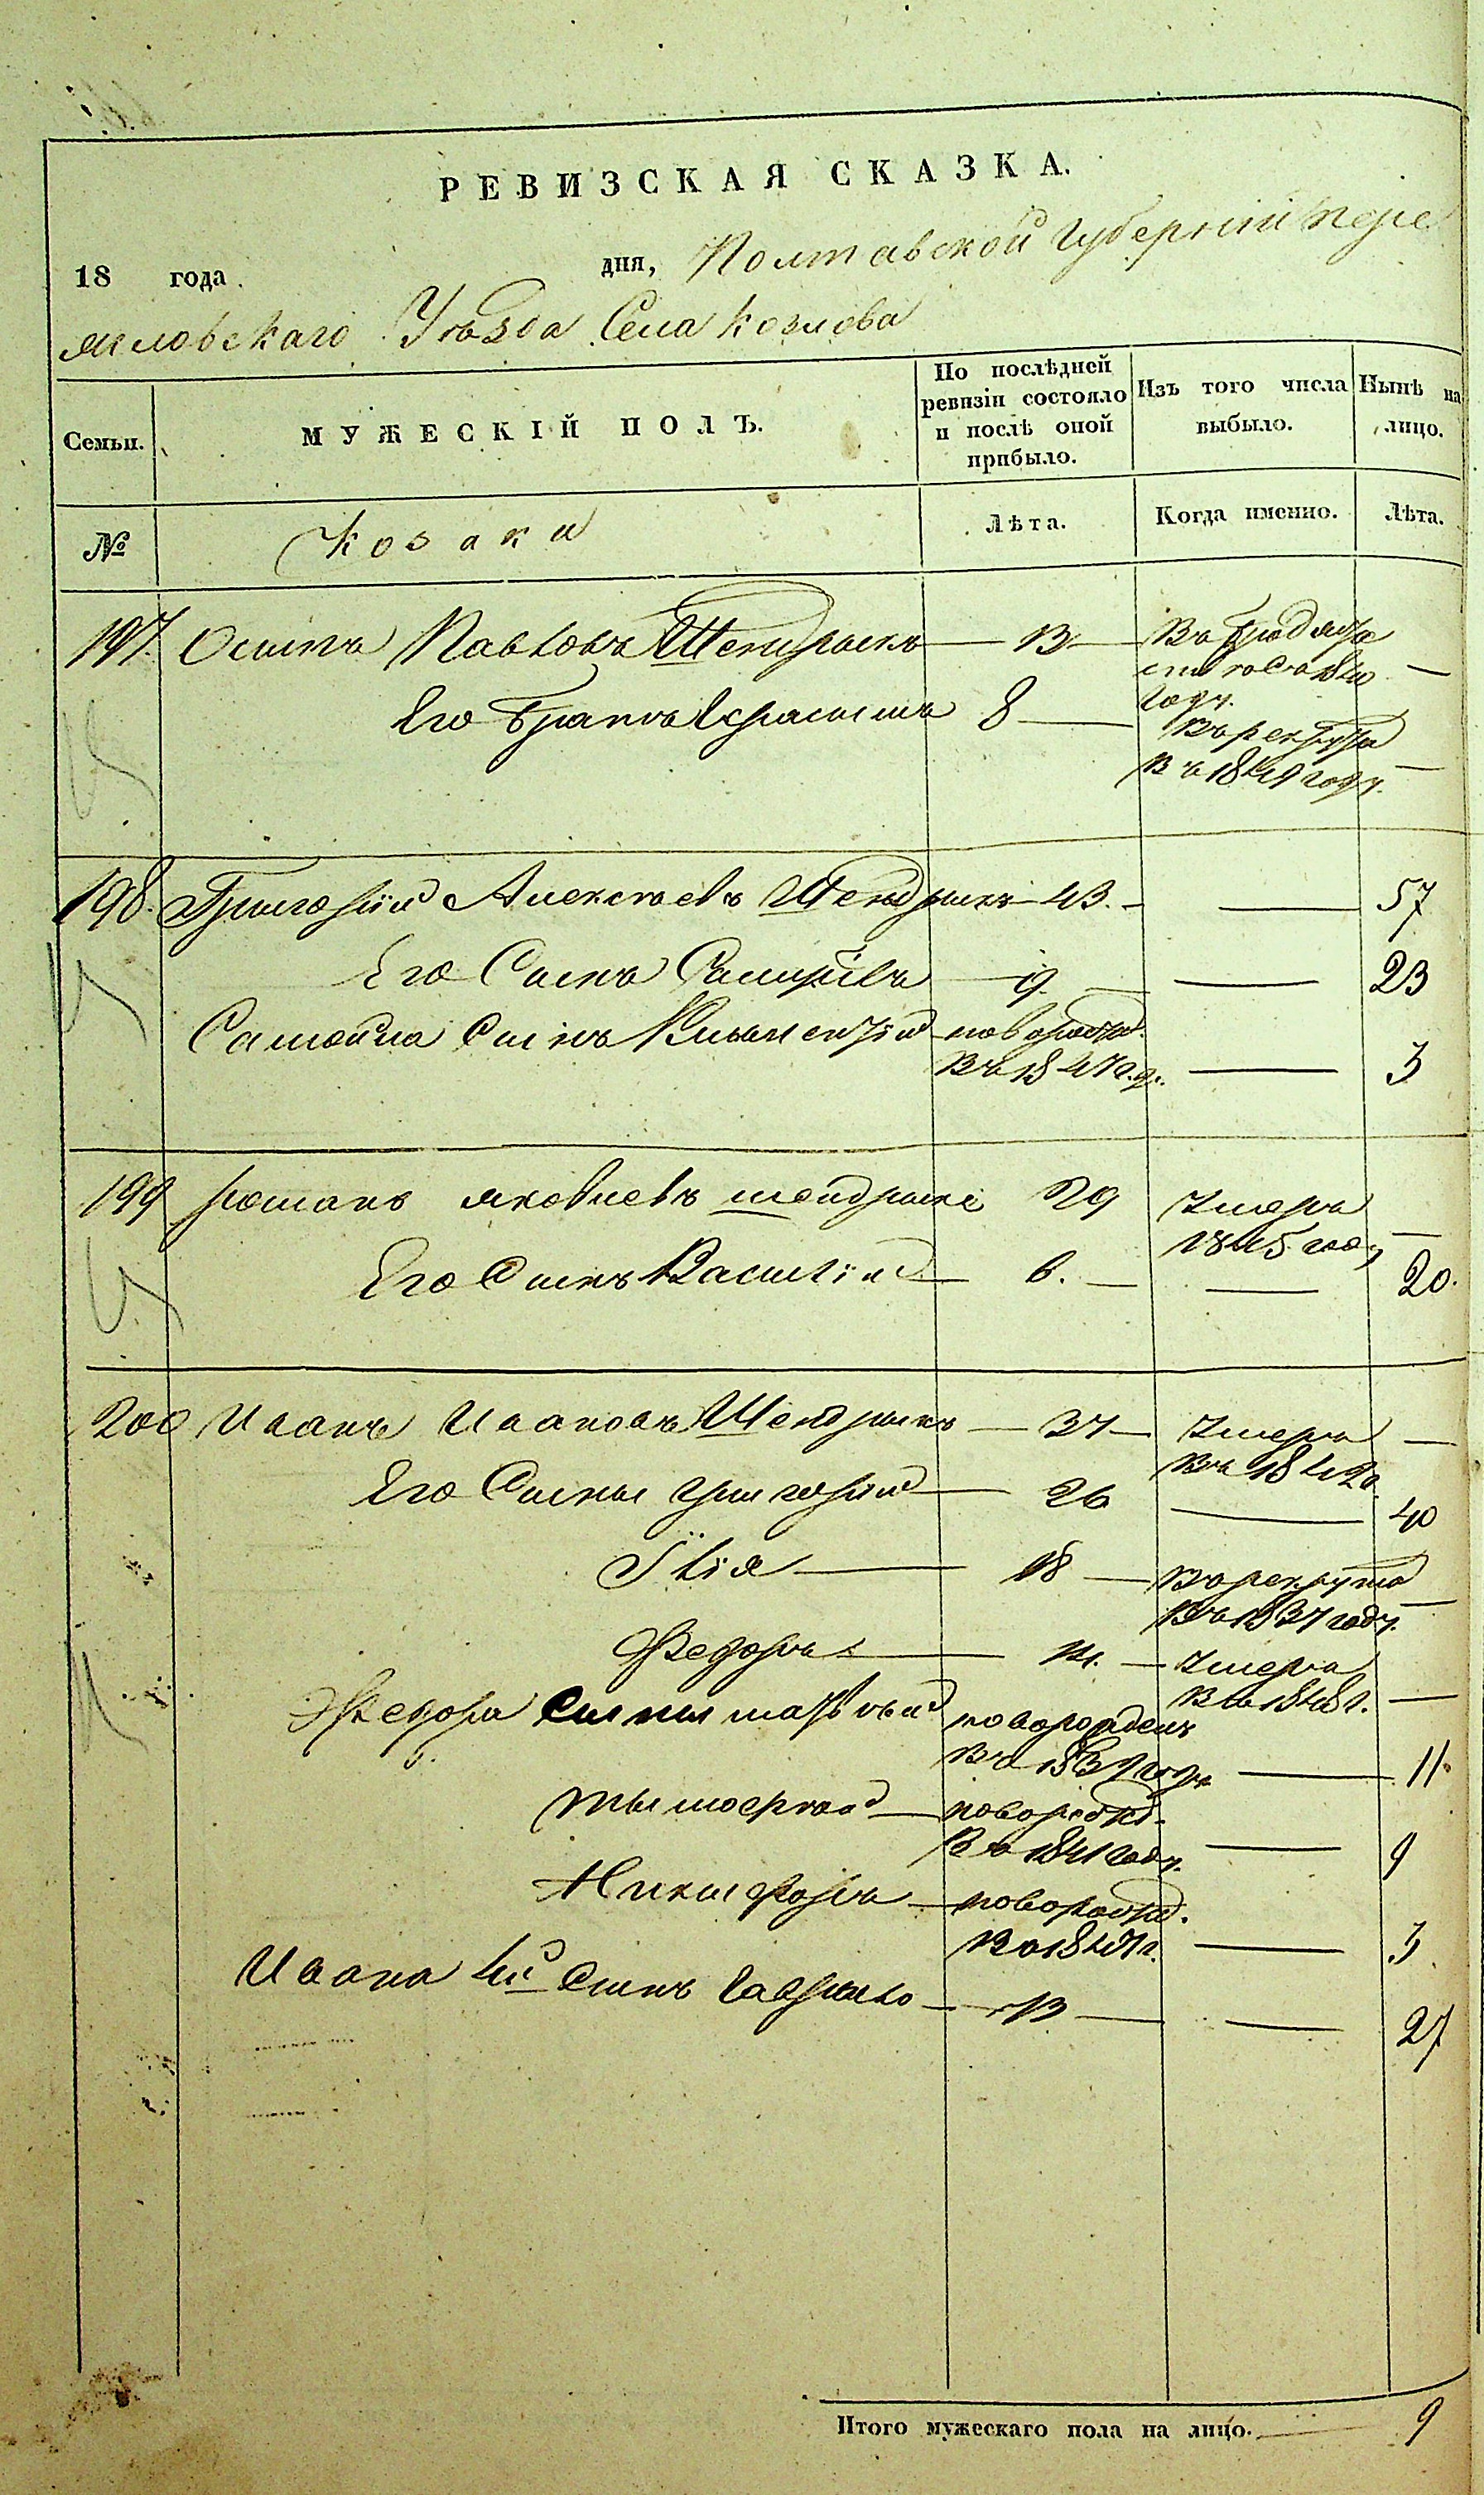 РЕВИЗСКАЯ СКАЗКА.
18 года дня, Полтавской Губерніи Пере
яславскаго Уѣзда Села Козлова
Семьи. МУЖЕСКІЙ ПОЛЪ. По послѣдней ревизіи состояло и послѣ оной прибыло. Изъ того числа выбыло. Ныпѣ на лицо.
№ Козаки Лѣта. Когда именно. Лѣта.
197. Осипъ Павловъ Шендрикъ — 13 — Въ
18
году.
Его Братъ Герасимъ 8 — Въ рекруты —
Въ 1849 году.
198. Григорій Алексѣевъ Шендрикъ 43. — — 57
Его Сынъ Самуйлъ 9. — — 23
Самойла Сынъ Климентій новорожд.
Въ 1847 г. — 3
199 Романъ Яковлевъ Шендрикъ 29 Умеръ
1845 год. —
Его Сынъ Василій — 6. — — 20.
200 Иванъ Ивановъ Шендрикъ — 37 — Умеръ —
Въ 184
Его Сыны Григорій — 26 — 40
Илія — 18 — Въ рекруты
Въ 1837 году. —
Федоръ — 14. — Умеръ
Въ 1848 г. —
Федора Сыны Матвѣй новорожденъ
Въ 1839 году — 11.
Тымофѣй — новорожд.
Въ 1841 году. — 9
Никифоръ — новорожд.
Въ 1847 г. — 3
Ивана 4й Сынъ Гаврило — 13 — — 27
Итого мужескаго пола на лицо. 9